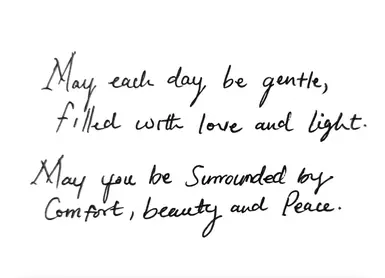 May each day be gentle,
filled with love and light.
May you be Surrounded by
Comfort, beauty and Peace.